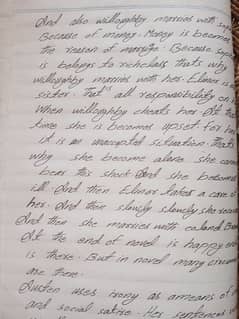 And also willoughby marries with
Because of money. Money is become
the reason of marrige. Because
is belongs to richclass that's why
willoughby marries with her. Elinor is
sister. That's all responsibility on
When willoughby cheats her. At that
time she is becomes upset for
it is an unaccepted situation. That's
why she become alone she can
bear this shock. And she becomes
ill. And then Elinor takes a care of
her. And then slowly slowely she
And then she marries with
At the end of novel is happy
is there. But in novel many
are there.
Austen uses irony as ameans of
and social satire. Her sentences